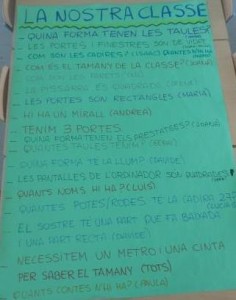 LA NOSTRA CLASSE
- QUINA FORMA TENEN LES TAULES?
- LES PORTES I FINESTRES SÓN DE
- COM SÓN LES CADIRES?
- COM ÉS EL TAMANY DE LA CLASSE?
- LA PISSARRA ÉS
- LES PORTES SÓN RECTANGLES (MARIA)
- HI HA UN MIRALL (ANDREA)
- TENIM 3 PORTES
- QUINA FORMA TENEN ELS PRESTATGES?
- QUANTES TAULES TENIM?
- QUINA FORMA TE LA LLUM? (DAVIDE)
- LES PANTALLES DE L'ORDINADOR SÓN
- QUANTS NOMS HI HA? (LUIS)
- QUANTES POTES/RODES TE LA CADIRA
- EL SOSTRE TE UNA PART QUE FA BAIXADA
I UNA PART RECTA (DAVIDE)
- NECESSITEM UN METRO I UNA CINTA
PER SABER EL TAMANY (TOTS)
- QUANTS CONTES HI HA? (PAULA)